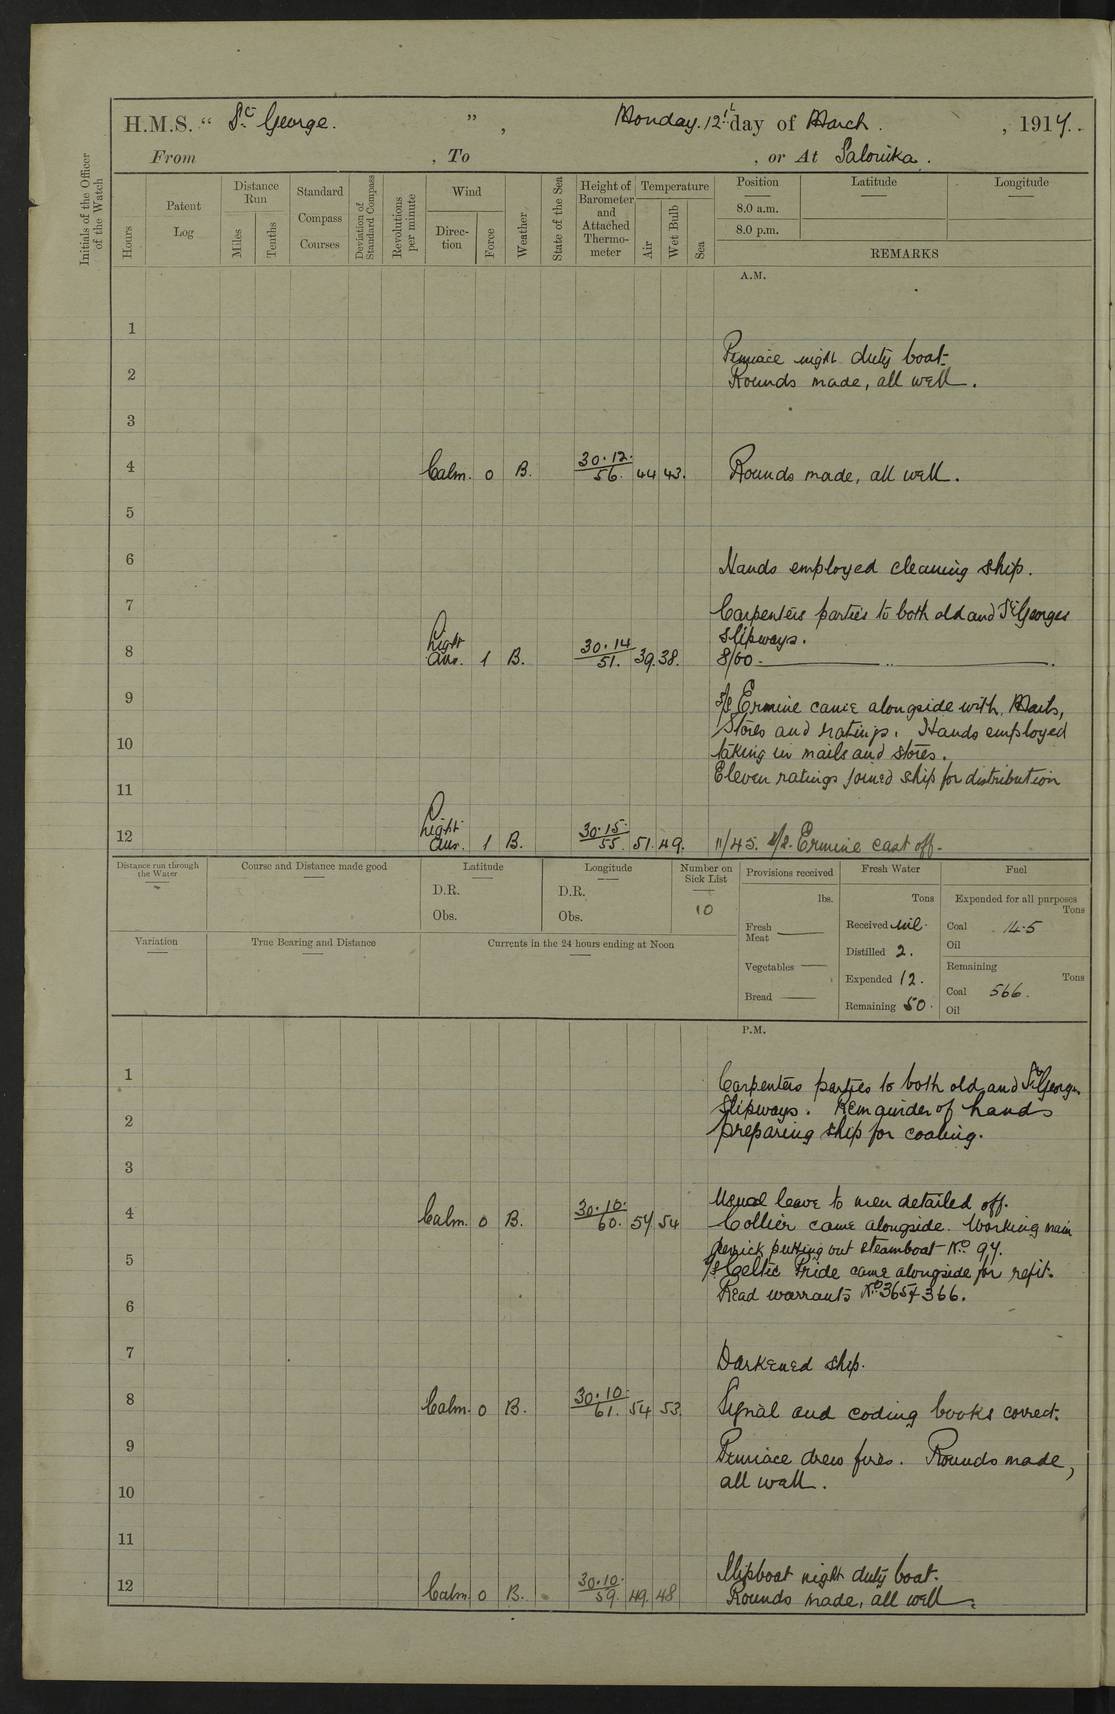 H.M.S. “ St George. ” , Monday. 12th day of March. , 1917.
From , To , or At Salonika.
Initials of the Officer of the Watch
Hours
Patent Log
Distance Run
Miles
Tenths
Standard Compass Courses
Deviation of Standard Compass
Revolutions per minute
Wind
Direc- tion
Force
Weather
State of the Sea
Height of Barometer and Attached Thermo- meter
Temperature
Air
Wet Bulb
Sea
Position Latitude Longitude
8.0 a.m.
8.0 p.m.
REMARKS
A.M.
1
Pinnace night duty boat.
2 Rounds made, all well.
3
4 Calm. 0 B. 30.12. 56. 44 43. Rounds made, all well.
5
6 Hands employed cleaning ship.
7 Carpenters parties to both old and St Georges
slipways.
8 Light airs. 1 B. 30.14 51. 39. 38. 8/00 . ——— .. ——— .
9 s/s Ermine came alongside with, Mails,
Stores and ratings. Hands employed
10 taking in mails and stores.
Eleven ratings joined ship for distribution
11
12 Light airs. 1 B. 30.15. 55. 51. 49. 11/45. s/s. Ermine cast off.
Distance run through the Water
Course and Distance made good
Latitude
D.R.
Obs.
Longitude
D.R.
Obs.
Number on Sick List
10
Provisions received
lbs.
Fresh Meat ——
Vegetables ——
Bread ——
Fresh Water
Tons
Received Nil.
Distilled 2.
Expended 12.
Remaining 50.
Fuel
Expended for all purposes
Tons
Coal 14.5
Oil
Remaining
Tons
Coal 566.
Oil
Variation
True Bearing and Distance
Currents in the 24 hours ending at Noon
P.M.
1 Carpenters parties to both old and St Georges
2 Slipways. Remainder of hands
preparing ship for coaling.
3
Usual leave to men detailed off.
4 Calm. 0 B. 30.10. 60. 57 54 Collier came alongside. Working main
derrick putting out steamboat No 97.
5 s/s Celtic Pride came alongside for refit.
Read warrants No 365 & 366.
6
7 Darkened ship.
8 Calm. 0 B. 30.10. 61. 54 53. Signal and coding books correct.
9 Pinnace drew fires. Rounds made,
10 all well.
11
Slipboat night duty boat.
12 Calm 0 B. 30.10. 59. 49. 48 Rounds made, all well.